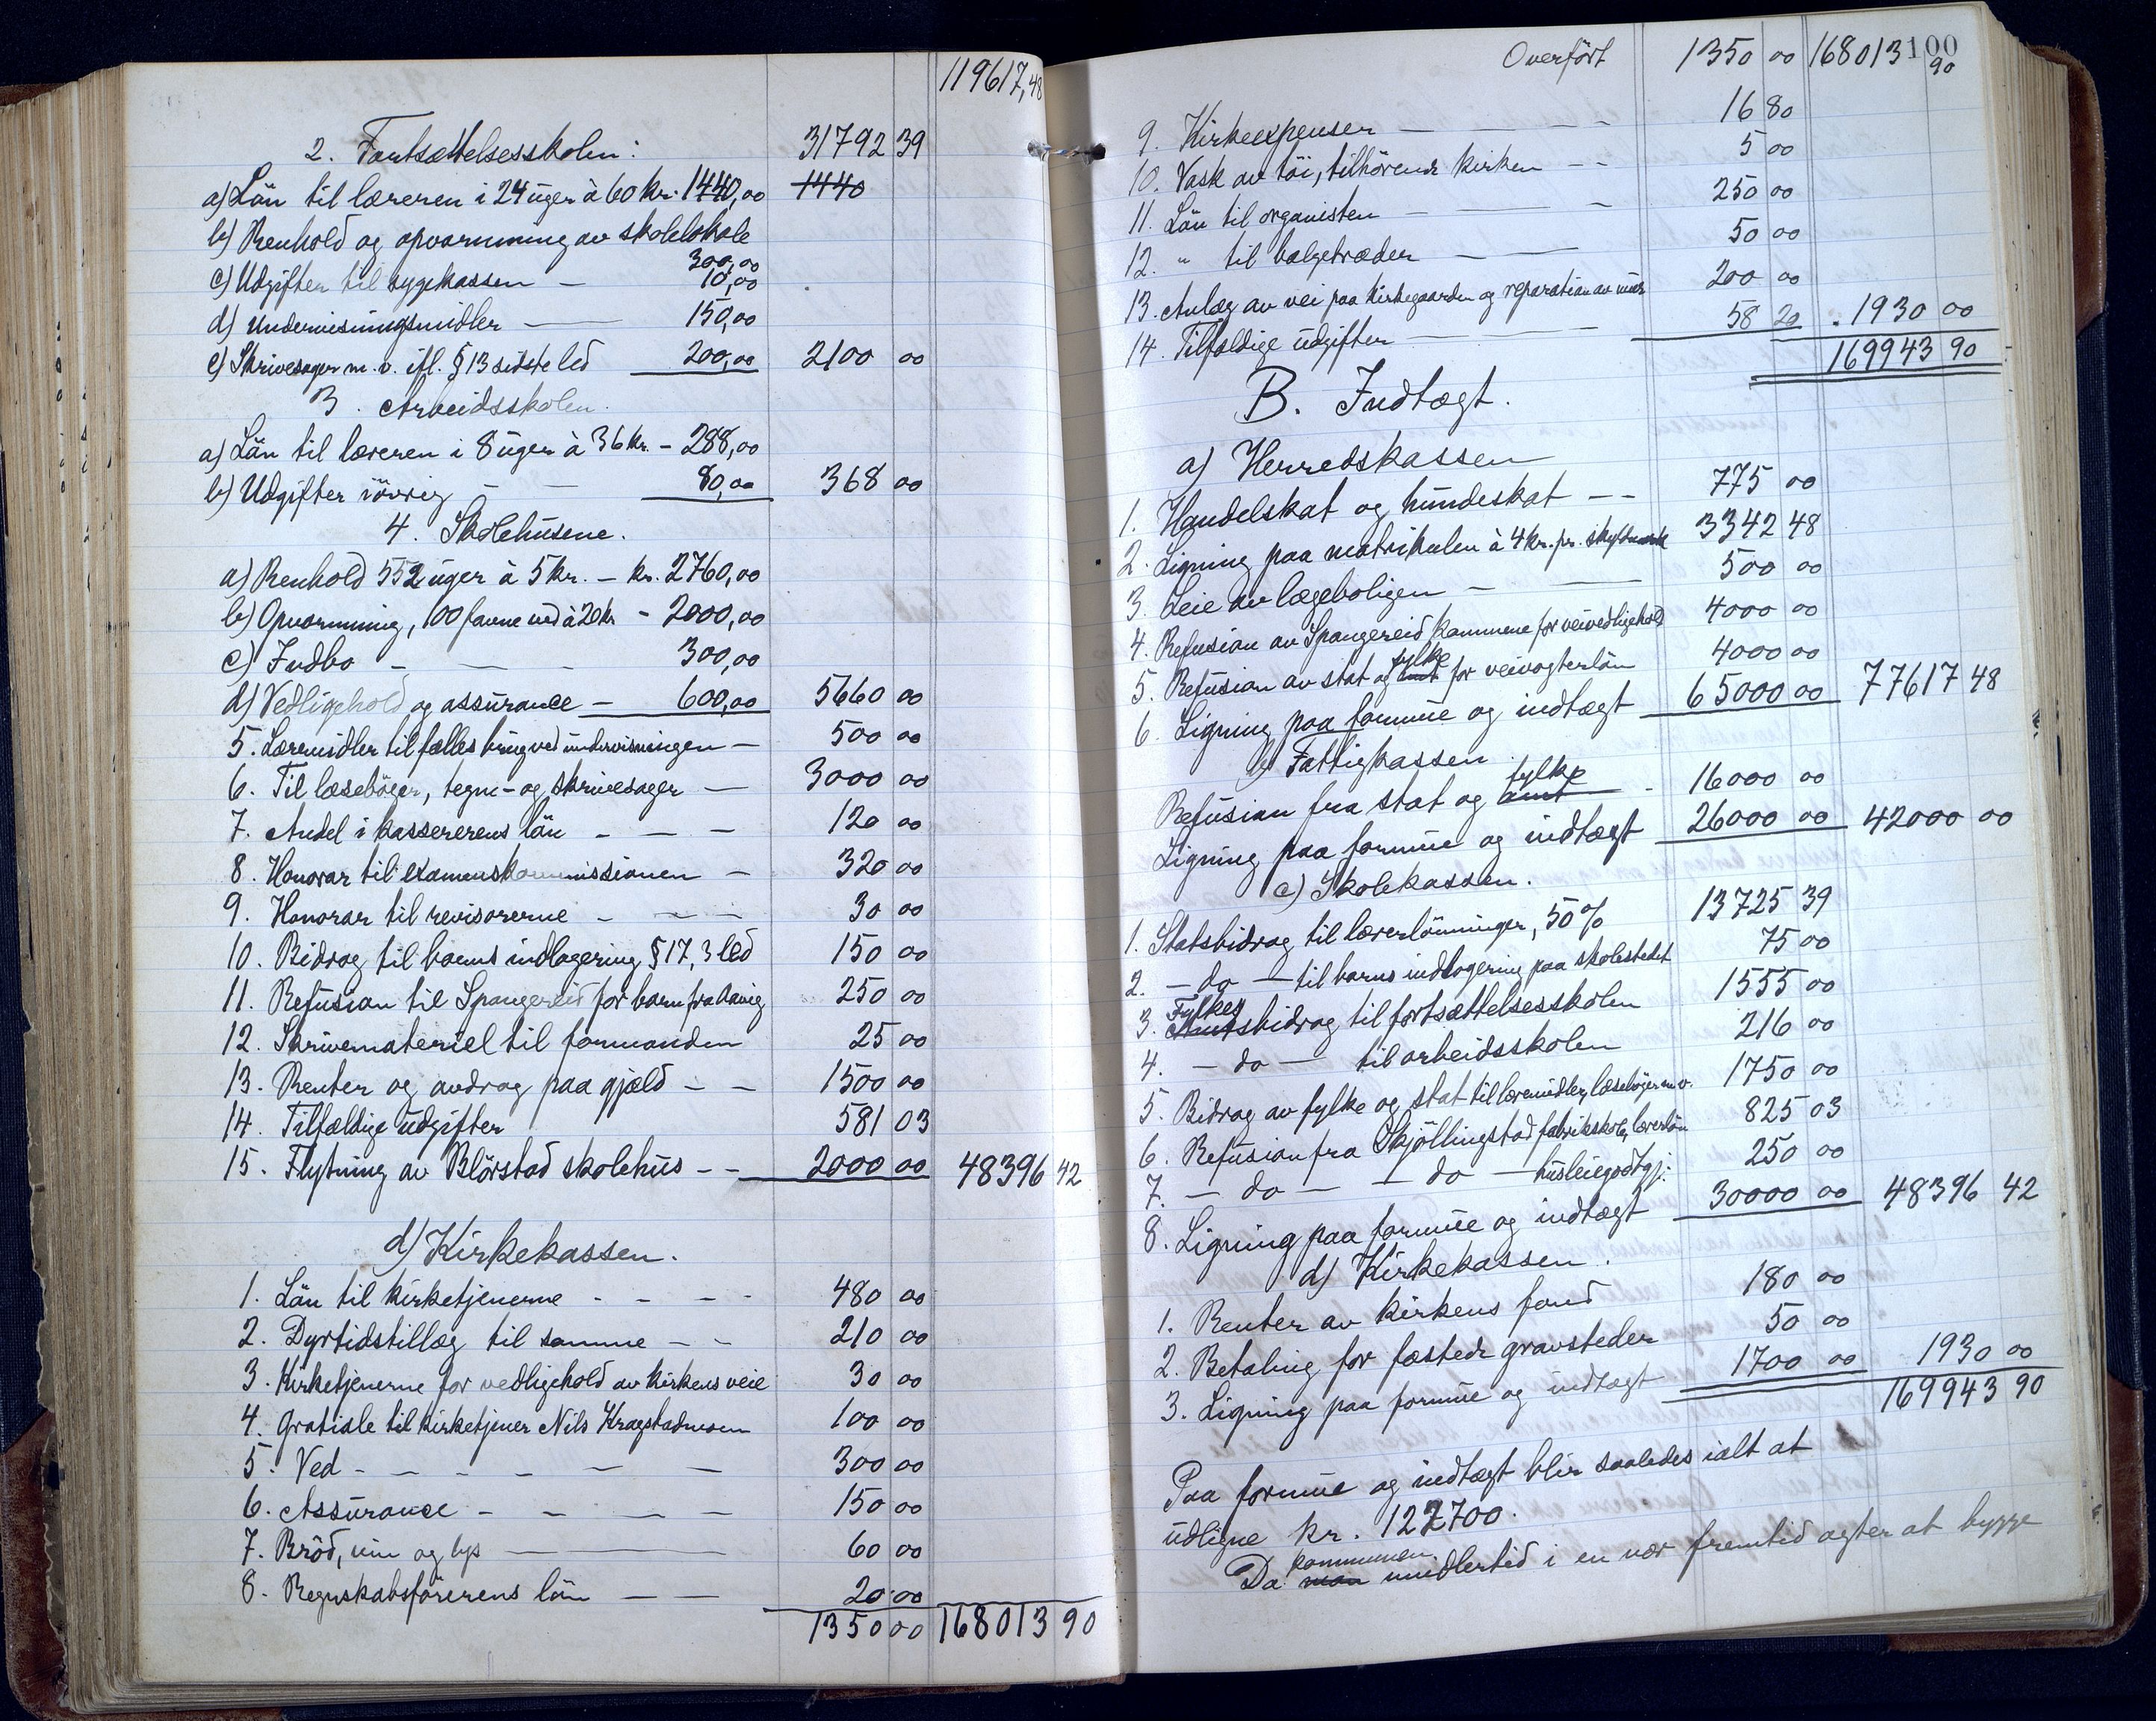 119617,48
2. Fortsættelsesskolen: 31792 39
a) Lön til læreren i 24 uger à 60 kr. 1440,00 1440
b) Renhold og opvarmning av skolelokale
300,00
c) Udgifter til sygekassen - 10,00
d) Undervisningsmidler — 150,00
e) Skrivesager m. v. ifl. § 13 sidste led 200,00 2100 00
3. Arbeidsskolen.
a) Lön til læreren i 8 uger à 36 kr. - 288,00
b) Udgifter iövrig - - 80,00 368 00
4. Skolehusene.
a) Renhold 552 uger à 5 kr. - kr. 2760,00
b) Opvarmning, 100 favne ved à 20 kr - 2000,00
c) Indbo - — - 300,00
d) Vedligehold og assurance - 600,00 5660 00
5. Læremidler til fælles brug ved undervisningen - 500 00
6. Til læseböger, tegne- og skrivesager — 3000 00
7. Andel i kassererens lön - — - 120 00
8. Honorar til examenskommissionen - 320 00
9. Honorar til revisorerne - — - 30 00
10. Bidrag til barns indlogering § 17, 3 led 150 00
11. Refusion til Spangereid for barn fra 250 00
12. Skrivemateriel til formanden 25 00
13. Renter og avdrag paa gjæld - - 1500 00
14. Tilfældige udgifter 581 03
15. Flytning av Blörstad skolehus - - 2000 00 48396 42
d) Kirkekassen.
1. Lön til kirketjenerne - - - - 480 00
2. Dyrtidstillæg til samme - - 210 00
3. Kirketjenerne for vedligehold av kirkens veie 30 00
4. Gratiale til kirketjener Nils 100 00
5. Ved - - - - — — 300 00
6. Assurance - - — — 150 00
7. Bröd, vin og lys — — 60 00
8. Regnskabsförerens lön — — 20 00
1350 00 168013 90
100
Overfört 1350 00 168013 90
9. Kirkeexpenser — — - 16 80
10. Vask av töi, tilhörende kirken - - 5 00
11. Lön til organisten - — - 250 00
12. " til bælgetræder - — 50 00
13. Anlæg av vei paa kirkegaarden og reparation av mur 200 00
14. Tilfældige udgifter — 58 20 1930 00
169943 90
B. Indtægt.
a) Herredskassen
1. Handelskat og hundeskat - - 775 00
2. Ligning paa matrikulen à 4 kr. pr. skyldmark 3342 48
3. Leie av lægeboligen - — 500 00
4. Refusion av Spangereid kommune for veivedligehold 4000 00
fylke
5. Refusion av stat og amt for veivogterlön 4000 00
6. Ligning paa formue og indtægt 65000 00 77617 48
b) Fattigkassen
fylke
Refusion fra stat og amt - 16000 00
Ligning paa formue og indtægt 26000 00 42000 00
c) Skolekassen.
1. Statsbidrag til lærerlönninger, 50% 13725 39
2. - do - til barns indlogering paa skolestedet 75 00
Fylkes
3. Amtsbidrag til fortsættelsesskolen 1555 00
4. - do - til arbeidsskolen 216 00
5. Bidrag av fylke og stat til læremidler, læseböger m. v. 1750 00
6. Refusion fra Skjöllingstad fabrikskole, lærerlön 825 03
7. - do - - do - husleiegodtgj: 250 00
8. Ligning paa formue og indtægt 30000 00 48396 42
d) Kirkekassen.
1. Renter av kirkens fond 180 00
2. Betaling for fæstede gravsteder 50 00
3. Ligning paa formue og indtægt 1700 00 1930 00
169943 90
Paa formue og indtægt blir saaledes ialt at
udligne kr. 122700.
kommunen
Da man imidlertid i en nær fremtid agter at bygge